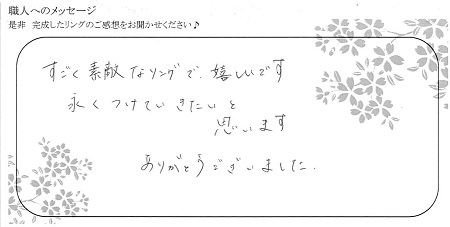 職人へのメッセージ
是非 完成したリングのご感想をお聞かせください♪
すごく素敵なリングで、嬉しいです
永くつけていきたいと
思います
ありがとうございました.